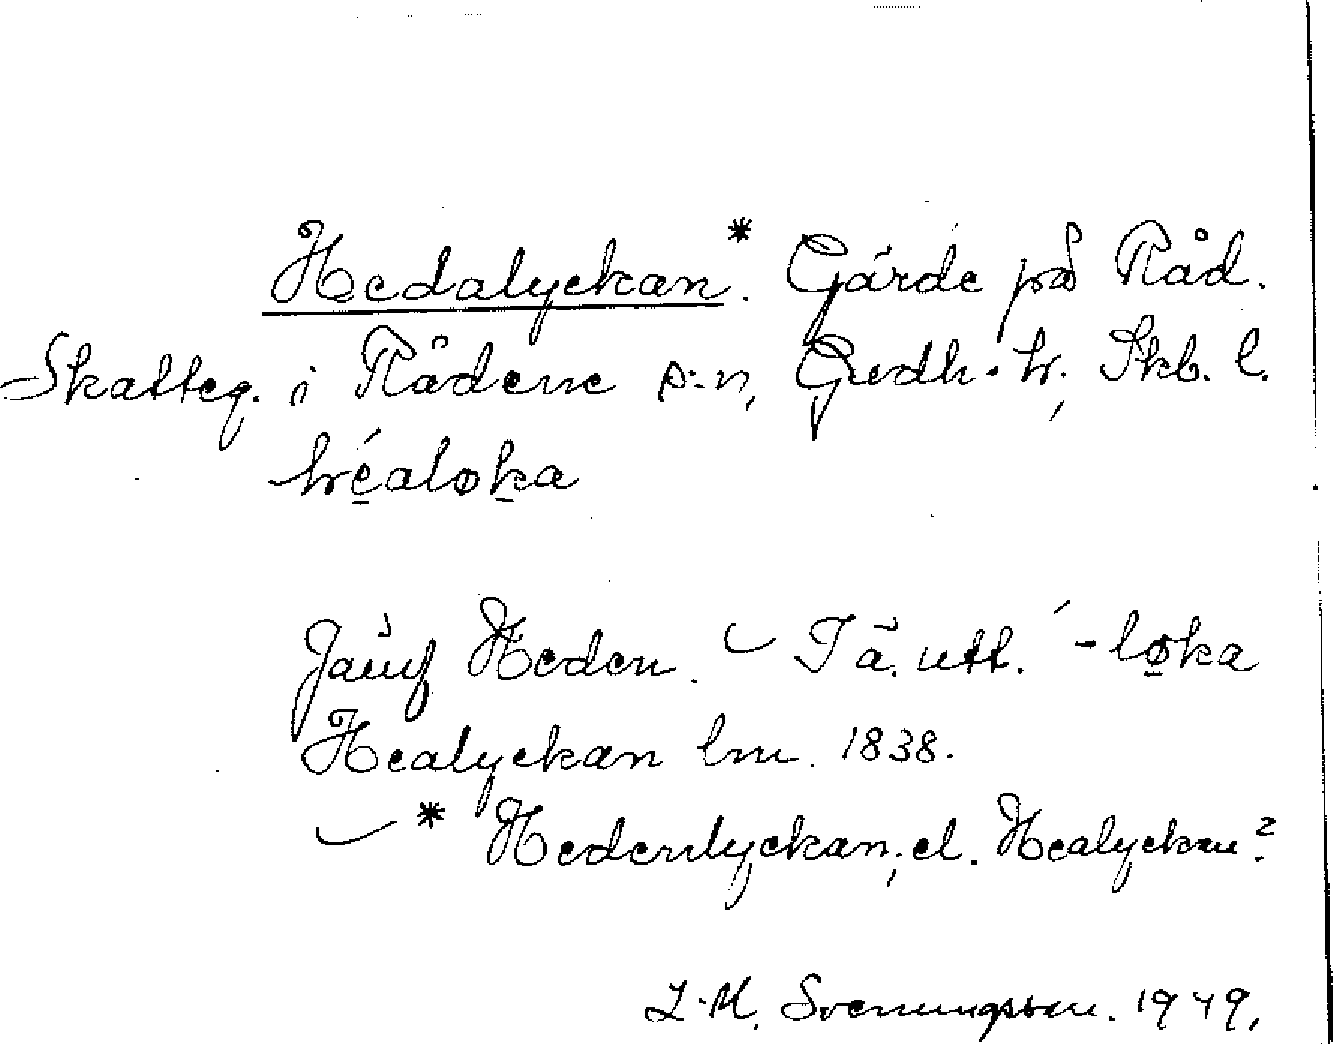 Hedalyckan.* Gärde på Råd.
Skatteg. i Rådene s:n, Gudh. hr, Skb. l.
héaloka
Jämf Heden. Tä. utt. ´-løka
Healyckan lm. 1838.
* Hedenlyckan, el. Healyckan?
L. M. Svenungsson. 1949.